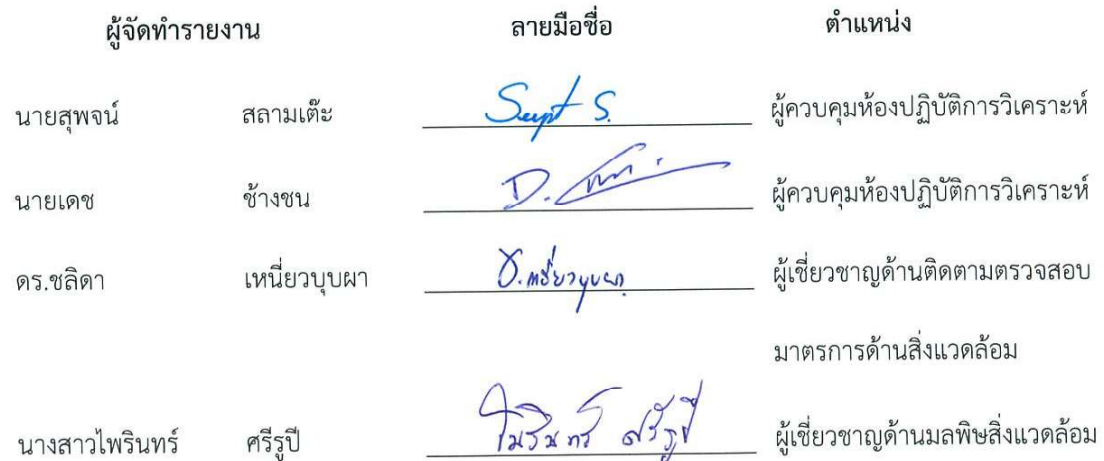 ผู้จัดทำรายงาน ลายมือชื่อ ตำแหน่ง
นายสุพจน์ สลามเต๊ะ Supt S. ผู้ควบคุมห้องปฏิบัติการวิเคราะห์
นายเดช ช้างชน D. ผู้ควบคุมห้องปฏิบัติการวิเคราะห์
ดร.ชลิดา เหนี่ยวบุบผา ช.เหนี่ยวบุบผา ผู้เชี่ยวชาญด้านติดตามตรวจสอบ
มาตรการด้านสิ่งแวดล้อม
นางสาวไพรินทร์ ศรีรูปี ไพรินทร์ ศรีรูปี ผู้เชี่ยวชาญด้านมลพิษสิ่งแวดล้อม